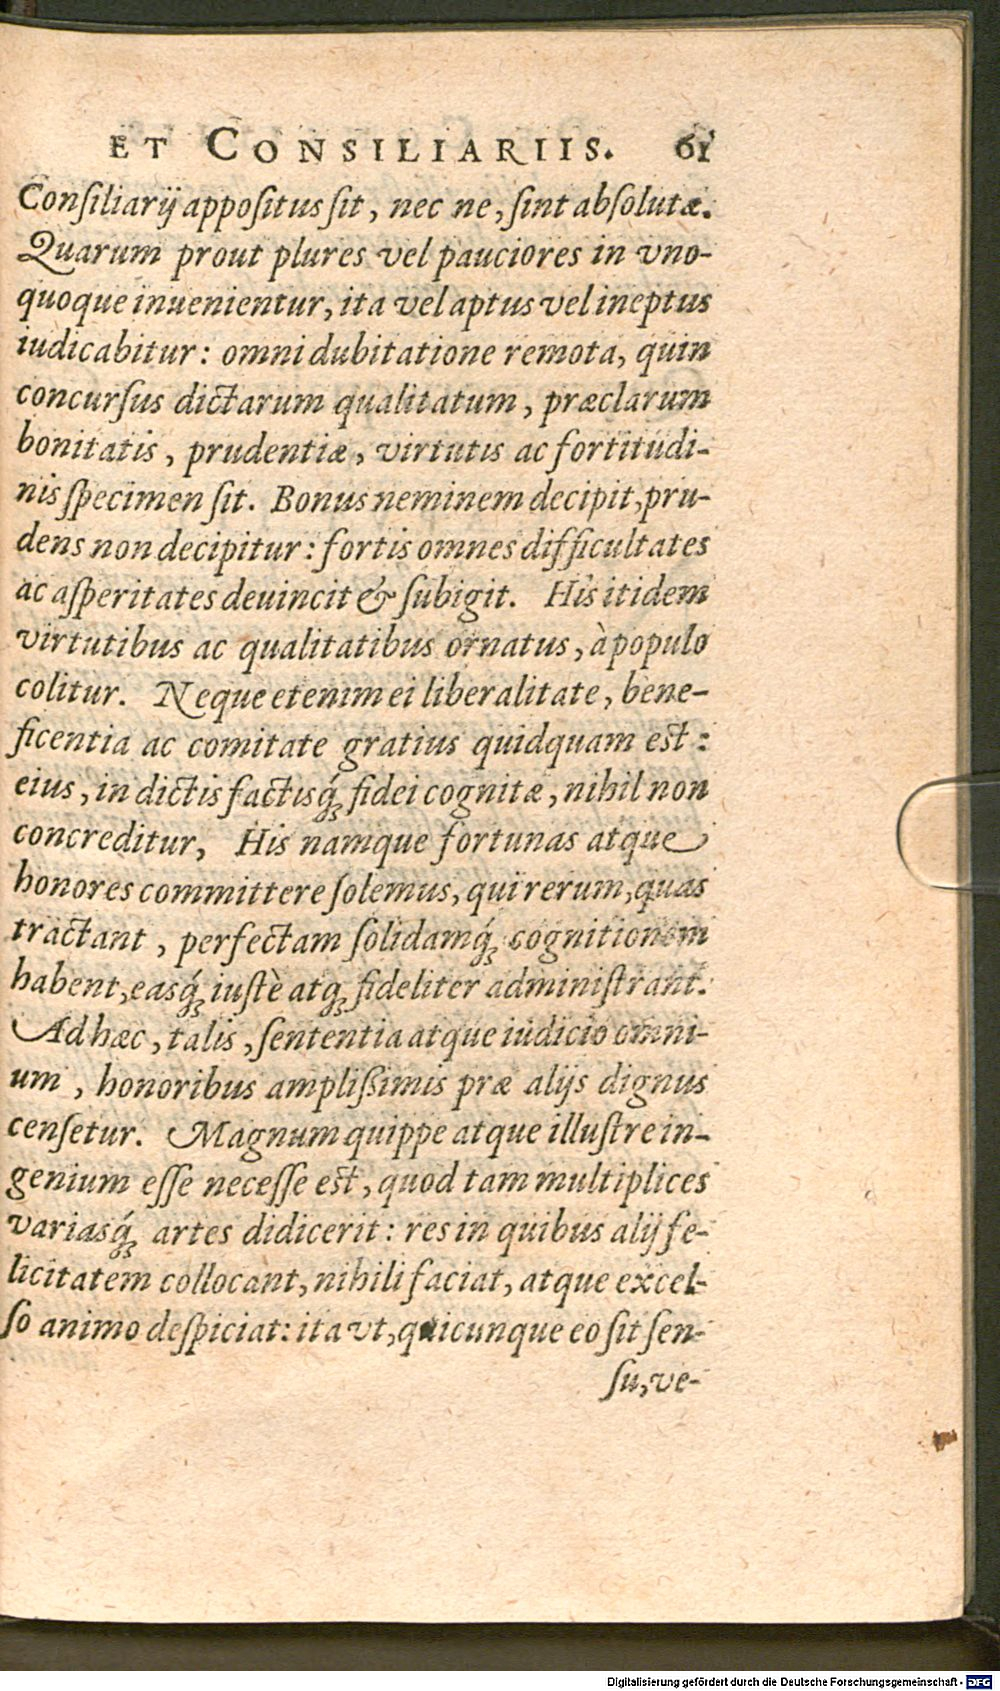 ET CONSILIARIIS. 61
Conſiliarij appoſitus ſit, nec ne, ſint abſolutæ.
Quarum prout plures vel pauciores in vno-
quoque inuenientur, ita vel aptus vel ineptus
iudicabitur: omni dubitatione remota, quin
concurſus dictarum qualitatum, præclarum
bonitatis, prudentiæ, virtutis ac fortitudi-
nis ſpecimen ſit. Bonus neminem decipit, pru-
dens non decipitur: fortis omnes difficultates
ac aſperitates deuincit & ſubigit. His itidem
virtutibus ac qualitatibus ornatus, à populo
colitur. Neque etenim ei liberalitate, bene-
ficentia ac comitate gratius quidquam est:
eius, in dictis factisq́; fidei cognitæ, nihil non
concreditur, His namque fortunas atque
honores committere ſolemus, qui rerum, quas
tractant, perfectam ſolidamq́; cognitionem
habent, easq́; iuſtè atq; fideliter adminiſtrant.
Ad hæc, talis, ſententia atque iudicio omni-
um, honoribus ampliſsimis præ alijs dignus
cenſetur. Magnum quippe atque illuſtre in-
genium eſſe neceſſe est, quod tam multiplices
variasq́; artes didicerit: res in quibus alij fe-
licitatem collocant, nihili faciat, atque excel-
ſo animo deſpiciat: ita vt, quicunque eo ſit ſen-
ſu, ve-
Digitalisierung gefördert durch die Deutsche Forschungsgemeinschaft - DFG